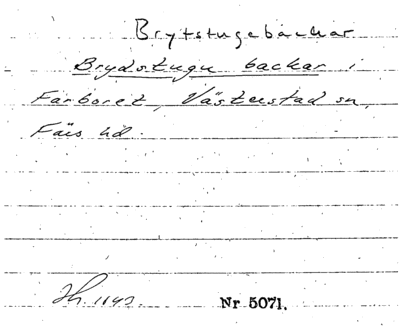 Brytstugebackar
Brydstugu backar i
Farboret, Västerstad sn,
Färs hd.
Nr 5071.